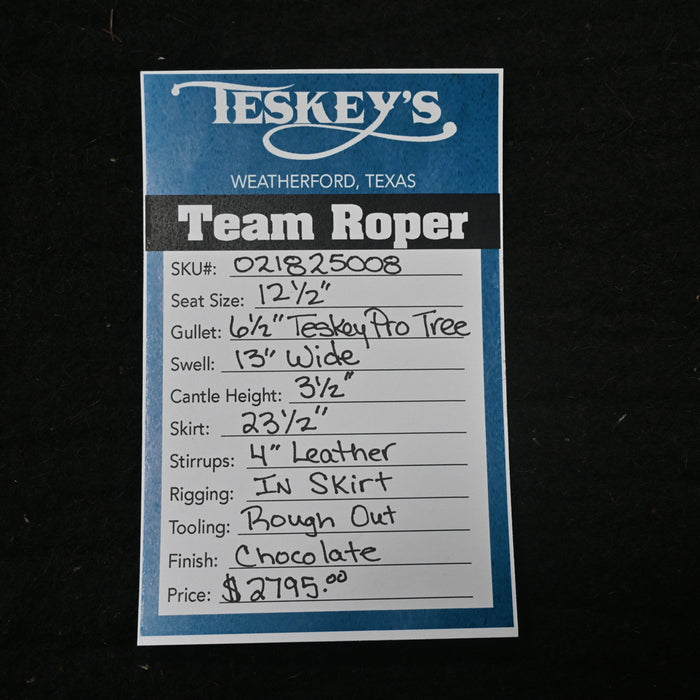 TESKEY'S
WEATHERFORD, TEXAS
Team Roper
SKU#: 021825008
Seat Size: 12 1/2"
Gullet: 6 1/2" Teskey Pro Tree
Swell: 13" Wide
Cantle Height: 3 1/2"
Skirt: 23 1/2"
Stirrups: 4" Leather
Rigging: IN SKirt
Tooling: Rough Out
Finish: Chocolate
Price: $2795.00